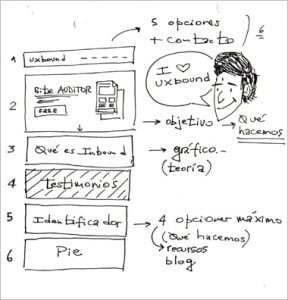 5 opciones
+ contacto
6
1 uxbound
I ♡ uxbound
2 Site AUDITOR
FREE
→ objetivo → Qué hacemos
3 Qué es Inbound → gráfico.
(teoría)
4 testimonios
5 Identificador → 4 opciones máximo
(Qué hacemos)
→ recursos
blog
6 Pie